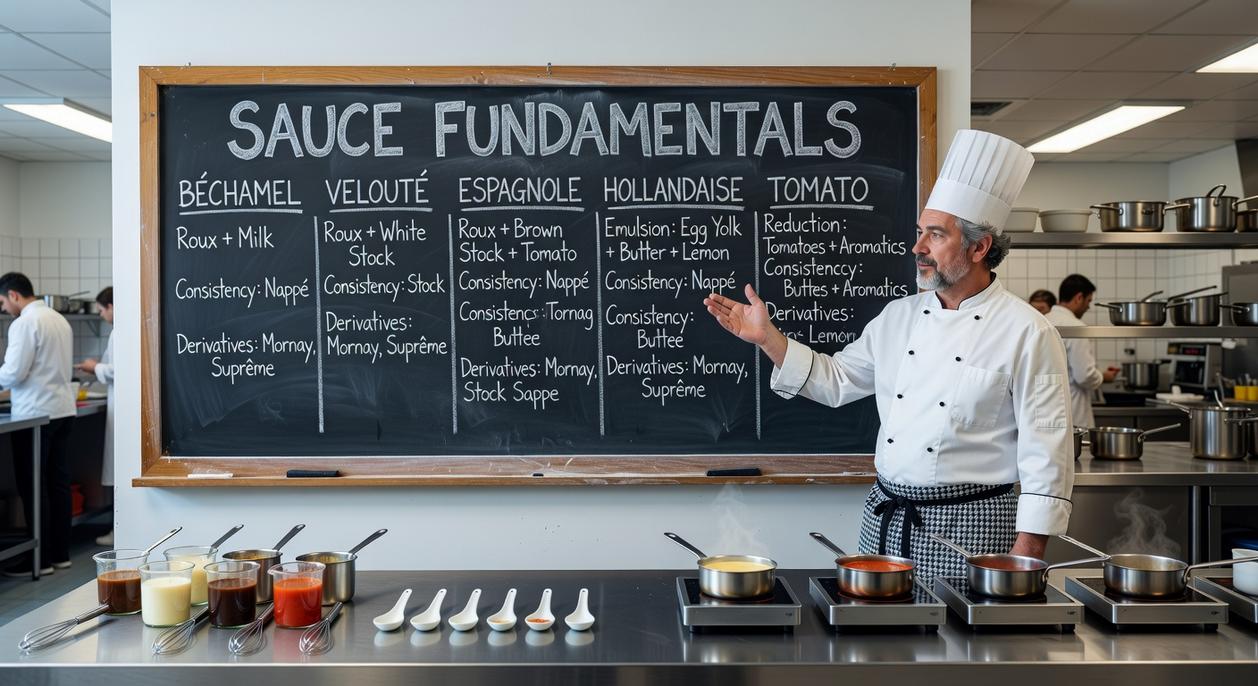 SAUCE FUNDAMENTALS
BÉCHAMEL
Roux + Milk
Consistency: Nappé
Derivatives: Mornay,
Suprême
VELOUTÉ
Roux + White
Stock
Consistency: Stock
Derivatives:
Mornay, Suprême
ESPAGNOLE
Roux + Brown
Stock + Tomato
Consistency: Nappé
Consistency: Tornag
Buttee
Derivatives: Mornay,
Stock Sappe
HOLLANDAISE
Emulsion: Egg Yolk
+ Butter + Lemon
Consistency: Nappé
Consistency:
Buttee
Derivatives: Mornay,
Suprême
TOMATO
Reduction:
Tomatoes + Aromatics
Consisteccy:
Buttes + Aromatics
Derivatives:
Lemon